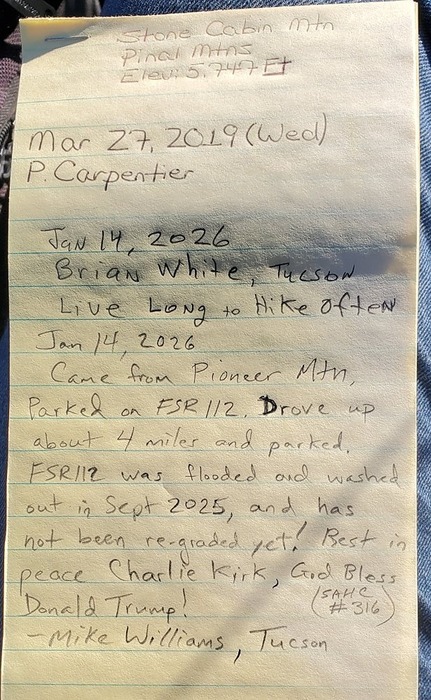 Stone Cabin Mtn
Pinal Mtns
Elev: 5,747 Ft
Mar 27, 2019 (Wed)
P. Carpentier
Jan 14, 2026
Brian White, Tucson
Live Long to Hike Often
Jan 14, 2026
Came from Pioneer Mtn,
Parked on FSR 112. Drove up
about 4 miles and parked.
FSR112 was flooded and washed
out in Sept 2025, and has
not been re-graded yet! Rest in
peace Charlie Kirk, God Bless
Donald Trump! (SAHC #316)
-Mike Williams, Tucson